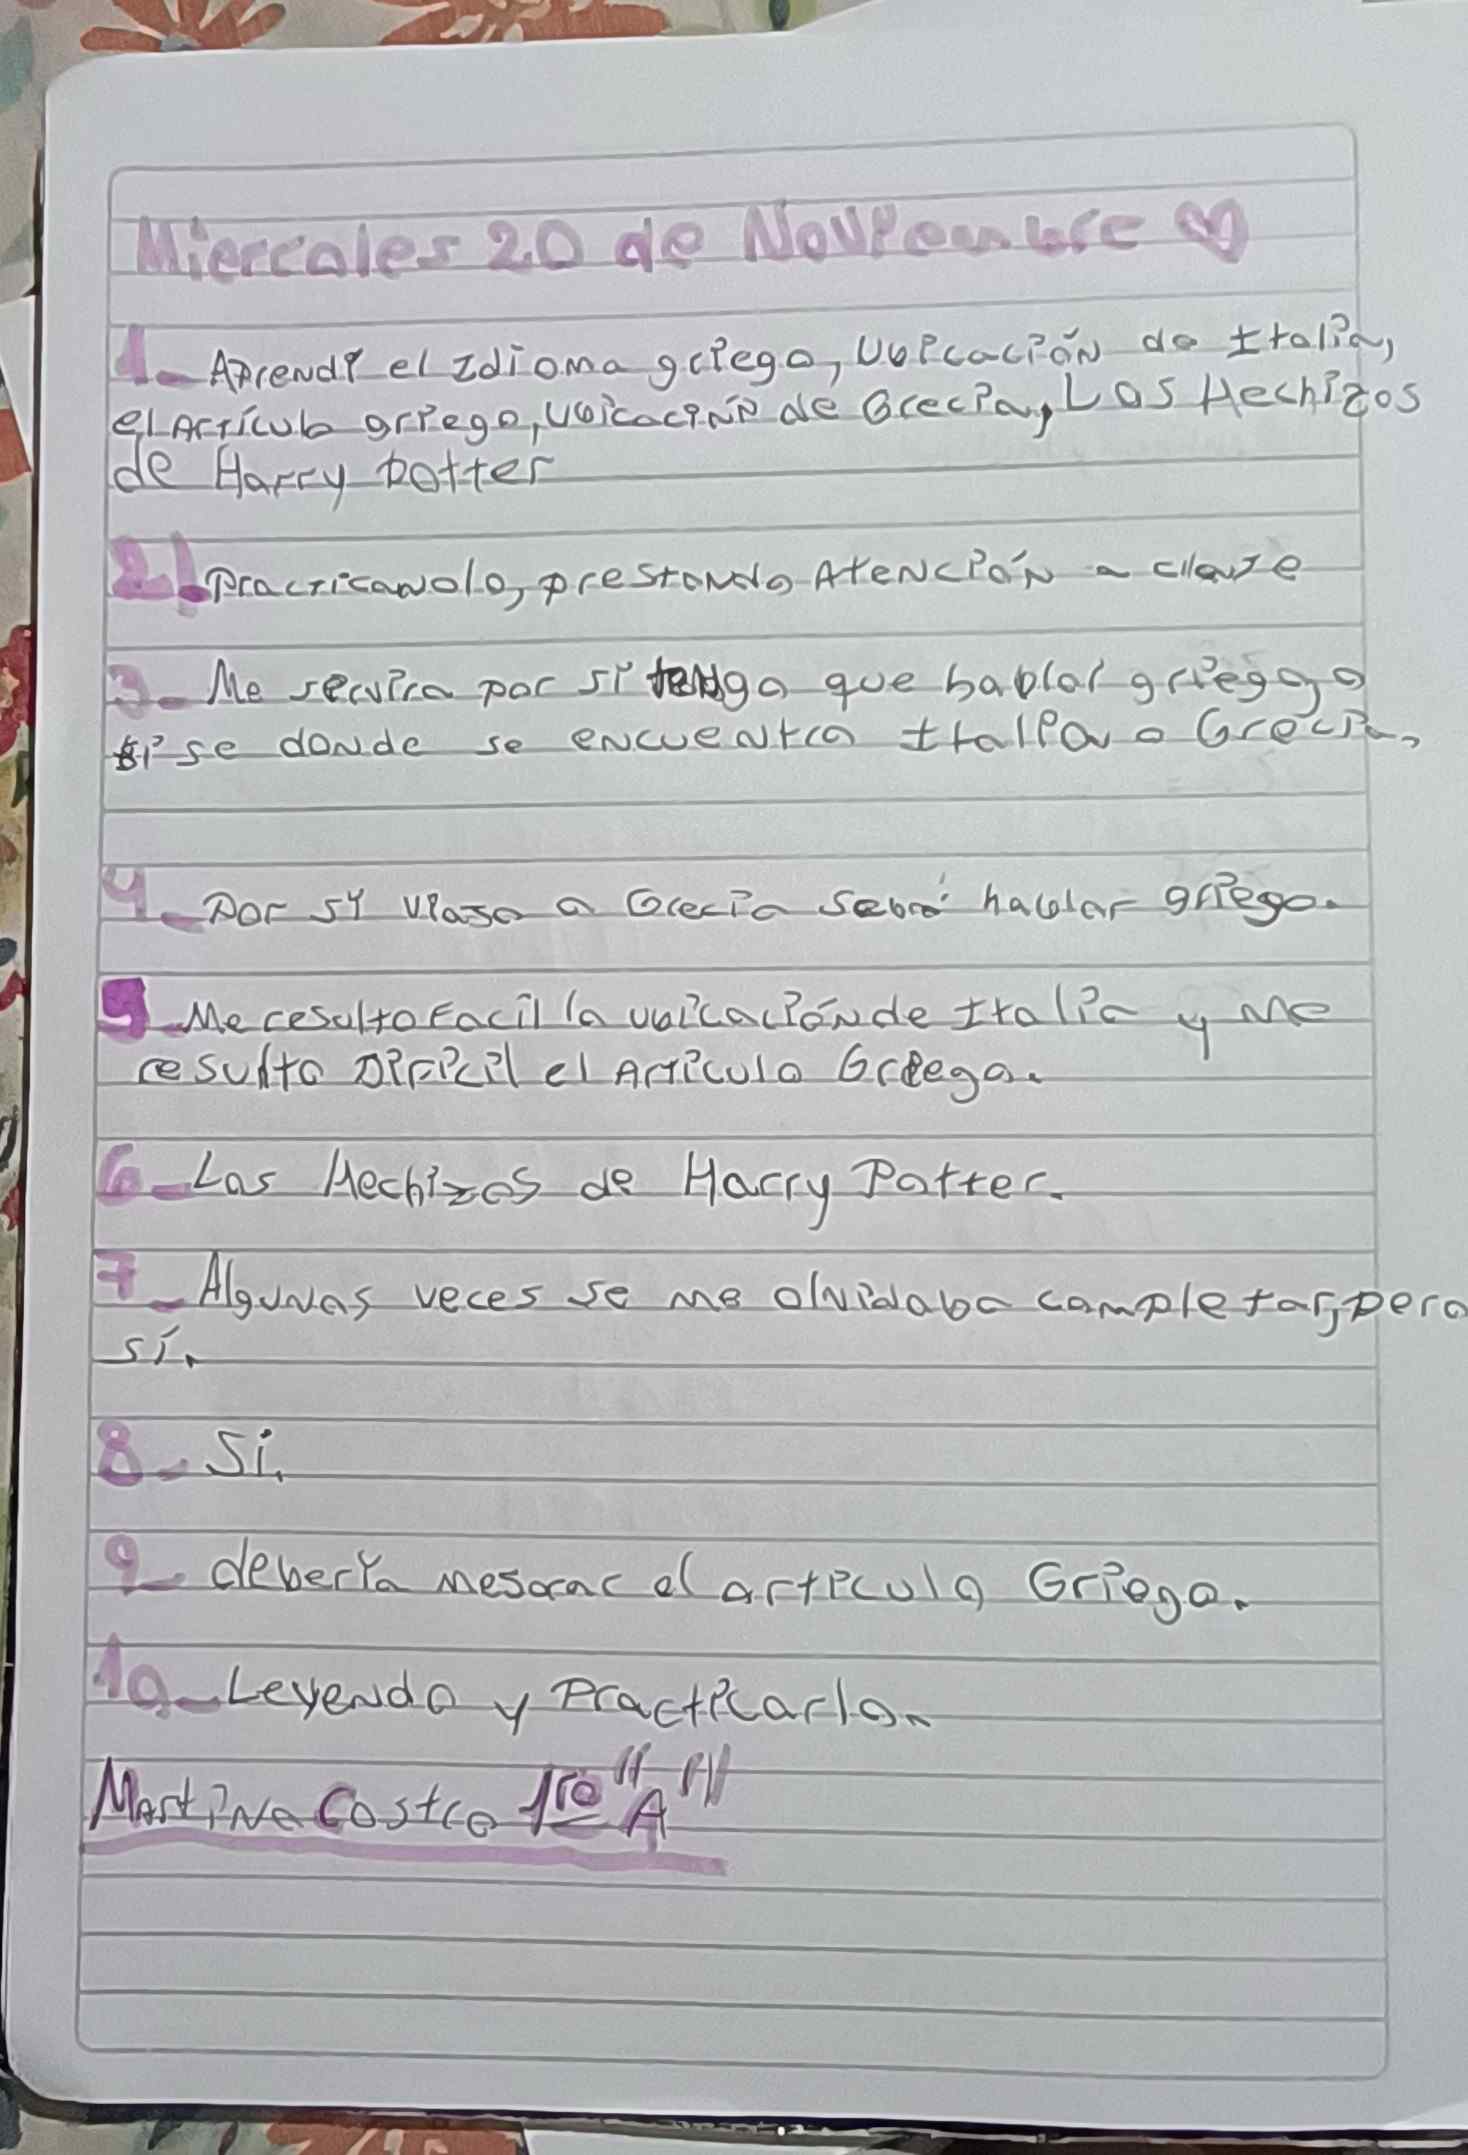 Miercoles 20 de Noviembre
1- Aprendí el Idioma griego, Ubicación de Italia,
el Artículo griego, ubicación de Grecia, Los Hechizos
de Harry potter
2- Practicandolo, prestando Atención a clase
3- Me servira por si tengo que hablar griego o
si se donde se encuentra Italia o Grecia,
4- Por si viajo a Grecia sabré hablar griego.
5- Me resulto Facil la ubicación de Italia y me
resulto Dificil el Articulo Griego.
6- Los Hechizos de Harry Potter.
7- Algunas veces se me olvidaba completar, pero
sí.
8- Si.
9- debería mejorar el articulo Griego.
10- Leyendo y Practicarlo.
Martina Costra 1ro "A"